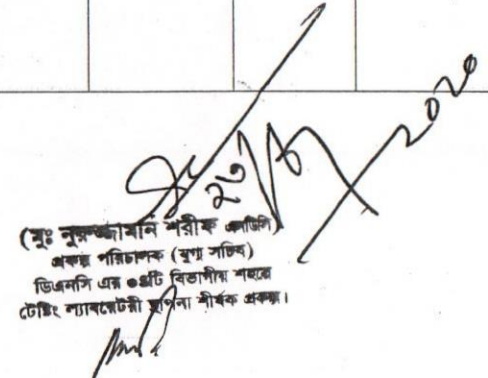 (মুঃ নুরুজ্জামান শরীফ এনডিসি)
প্রকল্প পরিচালক (যুগ্ম সচিব)
ডিএনসি এর ০৪টি বিভাগীয় শহরে
টেষ্টিং ল্যাবরেটরী স্থাপনা শীর্ষক প্রকল্প।